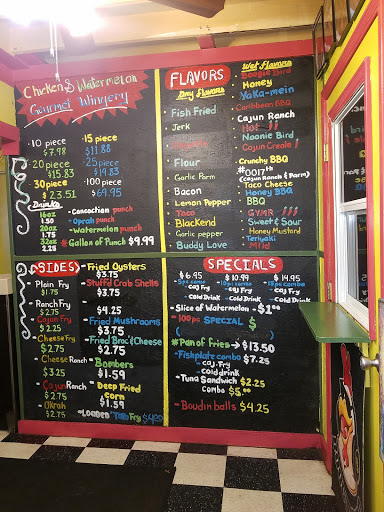 Chicken & Watermelon
Gourmet Wingery
10 piece
$7.98
20 piece
$15.83
30 piece
$23.51
15 piece
$11.88
25 piece
$19.83
100 piece
$69.95
Drinks
16oz
1.50
20oz
1.75
32oz
2.25
Cancachian punch
Oprah punch
Watermelon punch
* Gallon of Punch $9.99
FLAVORS
Dry Flavors
Fish Fried
Jerk
Flour
Garlic Parm
Bacon
Lemon Pepper
Taco
Blackend
Garlic pepper
Buddy Love
Wet Flavors
Boogie Bird
Honey
Yaka-mein
Caribbean BBQ
Cajun Ranch
Hot
Noonie Bird
Cajun Creole
Crunchy BBQ
#0017th
(Cajun Ranch & Parm)
Taco Cheese
Honey BBQ
BBQ
Sweet & Sour
Honey Mustard
Teriyaki
Mild
SIDES
Plain Fry
$1.75
Ranch Fry
$2.75
Cajun Fry
$2.25
Cheese Fry
$2.75
Cheese Ranch
$3.25
Cajun Ranch
$2.75
Okrah
$2.75
Fried Oysters
$3.75
Stuffd Crab Shells
$3.75
$4.25
Fried Mushrooms
$3.75
Fried Broc & Cheese
$2.75
Bombers
$1.59
Deep Fried
corn
$1.59
SPECIALS
$6.95
5pc combo
Caj Fry
Cold Drink
$10.99
10pc combo
Caj Fry
Cold Drink
$14.95
Caj Fry
Cold Drink
Slice of Watermelon - $1.00
100pc SPECIAL $
# Pan of Fries → $13.50
Fishplate combo $7.25
- caj. Fry
- cold drink
Tuna Sandwich $2.25
combo $5.00
Boudin balls $4.25